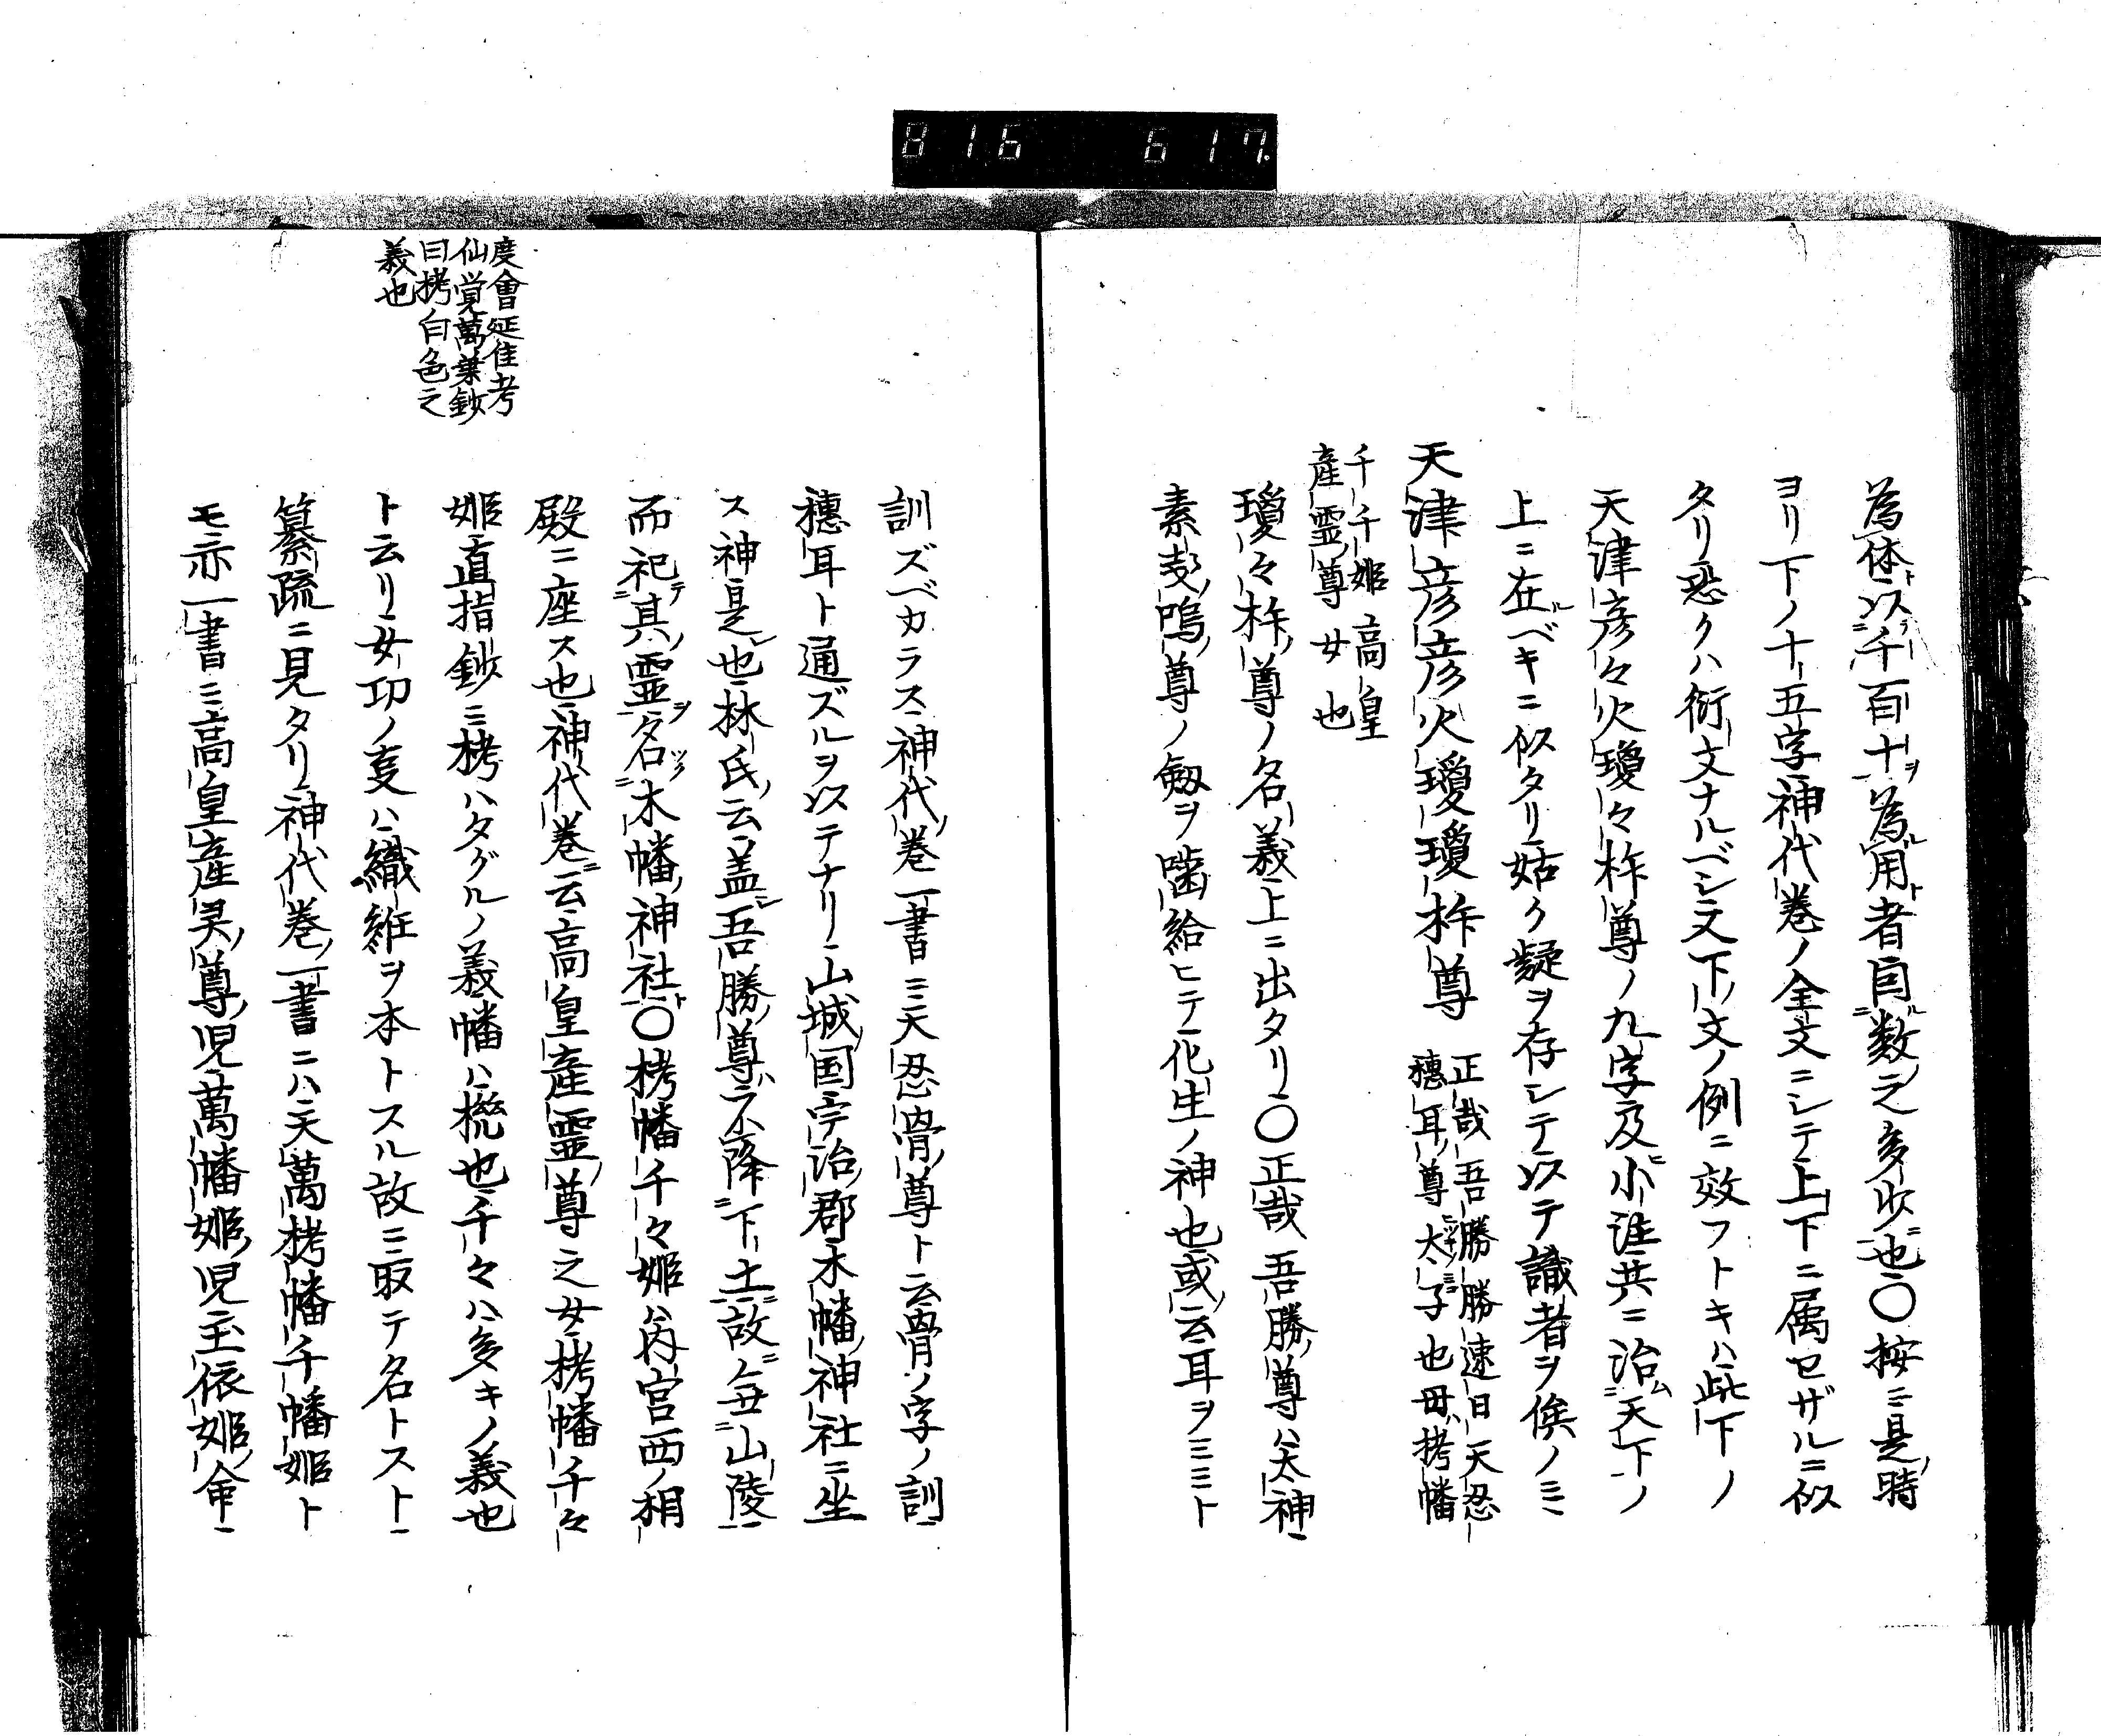 816 617.
為体以千百十為用者自数之多少也〇按ニ是時
ヨリ下ノ十五字神代巻ノ全文ニシテ上下ニ属セザルニ似
タリ恐クハ衍文ナルベシ又下文ノ例ニ效フトキハ此下ノ
天津彦々火瓊々杵尊ノ九字及ヒ小注共ニ治天下ノ
上ニ在ベキニ似タリ姑ク疑ヲ存シテ以テ識者ヲ俟ノミ
天津彦彦火瓊瓊杵尊
正哉吾勝勝速日天忍
穂耳尊太子也母栲幡
千千姫高皇
産霊尊女也
瓊々杵尊ノ名義上ニ出タリ〇正哉吾勝尊ハ太神
素戔嗚尊ノ劔ヲ囓給ヒテ化生ノ神也或云耳ヲミミト
訓ズベカラス神代巻一書ニ天忍骨尊ト云骨ノ字ノ訓
穂耳ト通ズルヲ以テナリ山城国宇治郡木幡神社ニ坐
ス神是也林氏云盖吾勝尊不降下土故無山陵
而祀其霊名木幡神社〇栲幡千々姫ハ内宮西ノ相
殿ニ座ス也神代巻云高皇産霊尊之女栲幡千々
姫直指鈔ニ栲ハタグルノ義幡ハ機也千々ハ多キノ義也
ト云リ女功ノ叓ハ織絍ヲ本トスル故ニ取テ名トスト
纂疏ニ見タリ神代巻一書ニハ天萬栲幡千幡姫ト
モ亦一書ニ高皇産灵尊児萬幡姫児玉依姫命
度會延佳考
仙覚萬葉鈔
曰栲白色之
義也